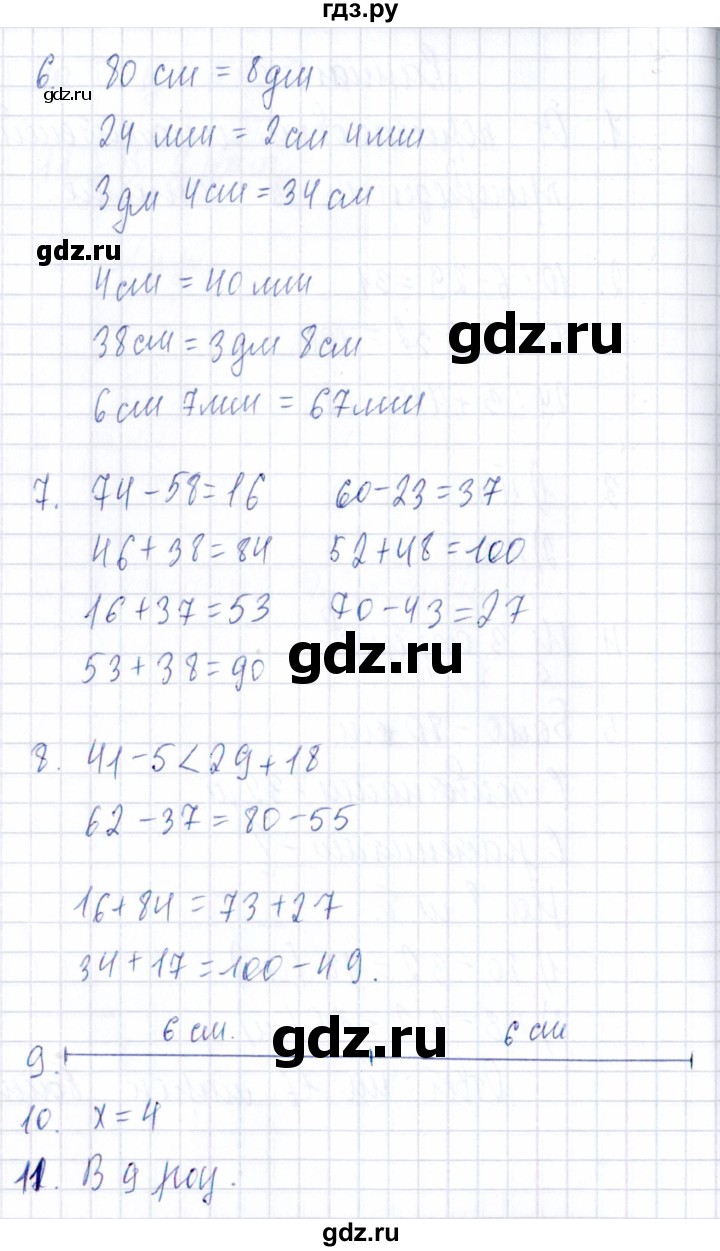 гдз.ру
6. 80 см = 8дм
gdz.ru
24 мм = 2см 4мм
3дм 4см = 34см
gdz.ru
4см = 40мм
gdz.ru
38см = 3дм 8см
6см 7мм = 67мм
7. 74-58=16 60-23=37
46+38=84 52+48=100
16+37=53 70-43=27
gdz.ru
53+38=90
8. 41-5<29+18
62-37=80-55
16+84=73+27
34+17=100-49.
gdz.ru
6 см. 6 см
9.
10. x=4
11. В 9
gdz.ru